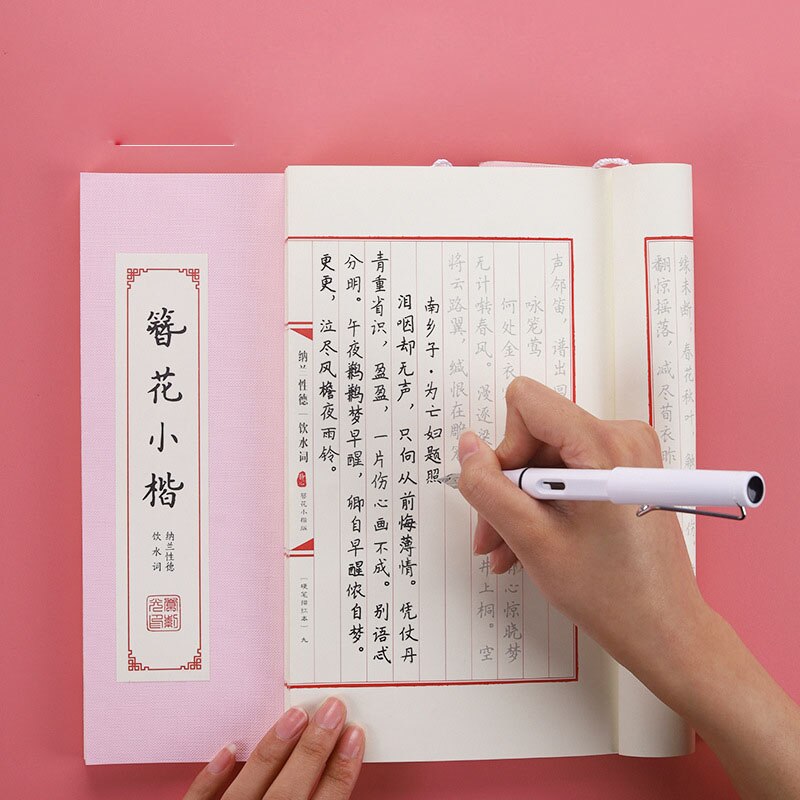 簪花小楷
纳兰性德
饮水词
缘未断，春花秋叶，
翻惊摇落，减尽荀衣昨
声邻笛，谱出回
咏笼莺
何处金衣 心惊晓梦
无计啭春风。漫逐梁 井上桐。空
将云路翼，缄恨在雕笼
南乡子·为亡妇题照
泪咽却无声，只向从前悔薄情。凭仗丹
青重省识，盈盈，一片伤心画不成。别语忒
分明。午夜鹣鹣梦早醒，卿自早醒侬自梦。
更更，泣尽风檐夜雨铃。
纳兰性德｜饮水词
簪花小楷版
（硬笔描红本）九